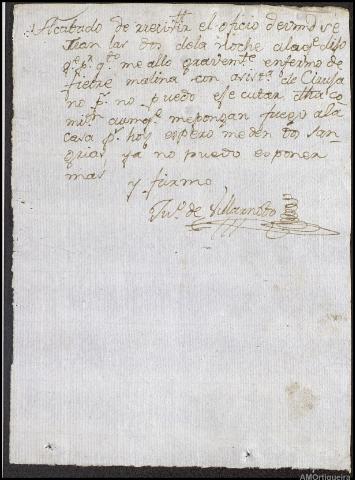 Acabado de recivir el oficio de vmd se
rian las dos de la Noche alaq.e digo
q.e p.r q.to me allo gravem.te enfermo de
fiebre malina con asist.a de Cirujano
no p.r no puedo ejecutar dha co
mis.n aunq.e mepongan fuego ala
casa p.s hoy espero me den 6 san
grias ya no puedo esponer
mas
y firmo
Ju.o de Villarnobo
AMOrtigueira